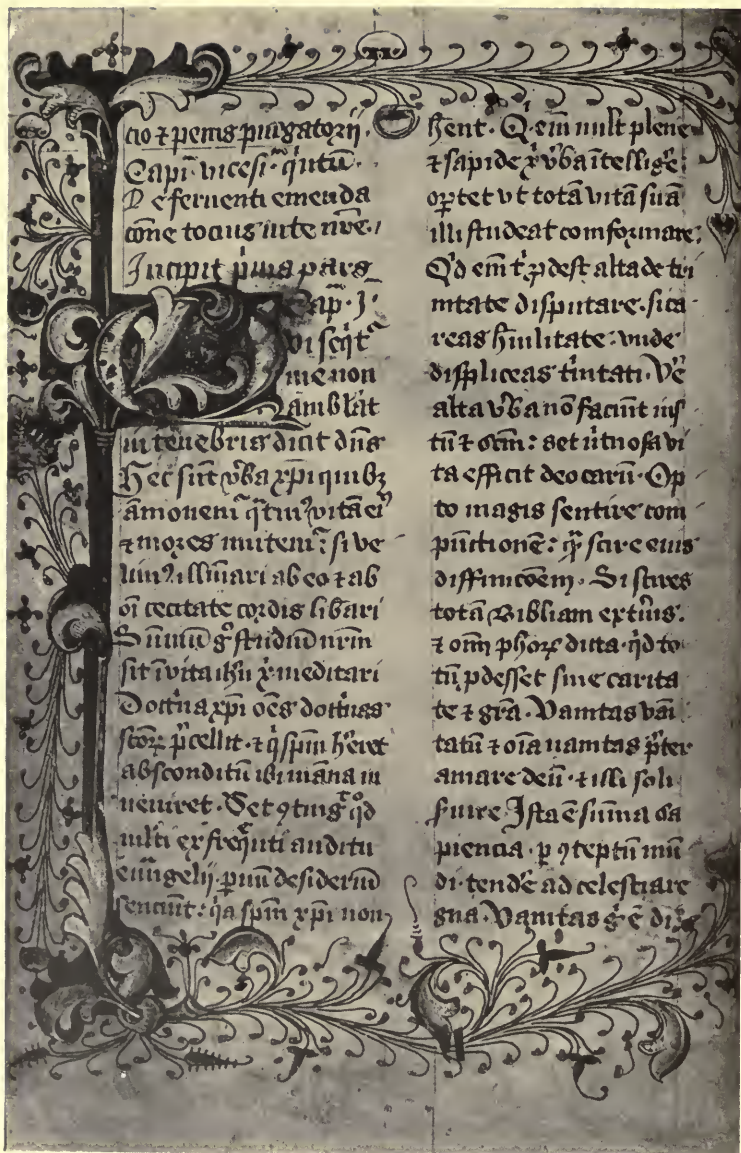 cio ⁊ penis purgatorij.
Capm̄. vicesi. qͥntū.
De feruenti emenda
cōne tocius vite nr̄e.
Incipit p̄ma pars
Cap. J.
Qvi seqͥt᷑
me non
ambulat
in tenebris dicit dn̄s
Hec sūt v̄ba xp̄i quibꝫ
āmonem᷑ qͣtinꝰ vitā eiꝰ
⁊ mores imitem᷑: si ve
limꝰ illūiari ab eo ⁊ ab
oī cecitate cordis libari
Sūmū gͦ studiū nr̄m
sit ī vita ihū xͥ meditari
Doctͥna xp̄i oēs doctͥnas
scōꝝ p̄cellit. ⁊ qͥ spm̄ h̄eret
absconditū ibi māna in
ueniret. Set ꝯtingͥt qͦd
ml̄ti ex freqͣuti auditu
euāngelij paruū desideriū
senciūt: qͥa spm̄ xp̄i non
hent. Qͥ. em̄ vult plene
⁊ sapide xͥ v̄ba ītellige͛
oꝑtet vt totā vitā suā
illi studeat comformare:
Qͥd em̄ tͥ ꝓdest alta de tri
nitate disputare. si ca
reas hūilitate: vnde
displiceas tͥnitati. Ve͛
alta v̄ba nō faciūt ius
tū ⁊ scm̄: set v̄tuosa vi
ta efficit deo carū. Op
to magis sentire com
pūctionē: qͣ scire eius
diffinicōem. Si scires
totā Bibliam exterꝰ.
⁊ om̄ ph̄oꝝ dicta. qͥd to
tū ꝓdesset sine carita
te ⁊ grā. Vanitas vāi
tatū ⁊ oīa vanitas p̄ter
amare deū. ⁊ illi soli
s͛uire Ista ē sūma sa
piencia. ꝑ ꝯteptū mū
di. tende͛ ad celestia re
gna. Vanitas gͥ ē di